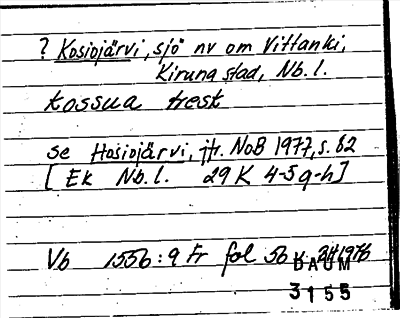 ? Kosiojärvi, sjö nv om Vittanki,
Kiruna stad, Nb. l.
kossua trest
se Hosiojärvi, jfr. NoB 1977, s. 62
[ Ek Nb. l. 29 K 4-5 g-h]
Vb 1556: 9 Fr fol 56 1976
DAUM
3155